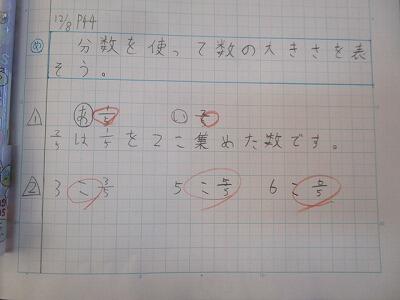 12/8 P44
め 分数を使って数の大きさを表
そう。
1 あ 1/5 い 2/5
2/5は1/5を2こ集めた数です。
2 3こ3/5 5こ5/5 6こ6/5